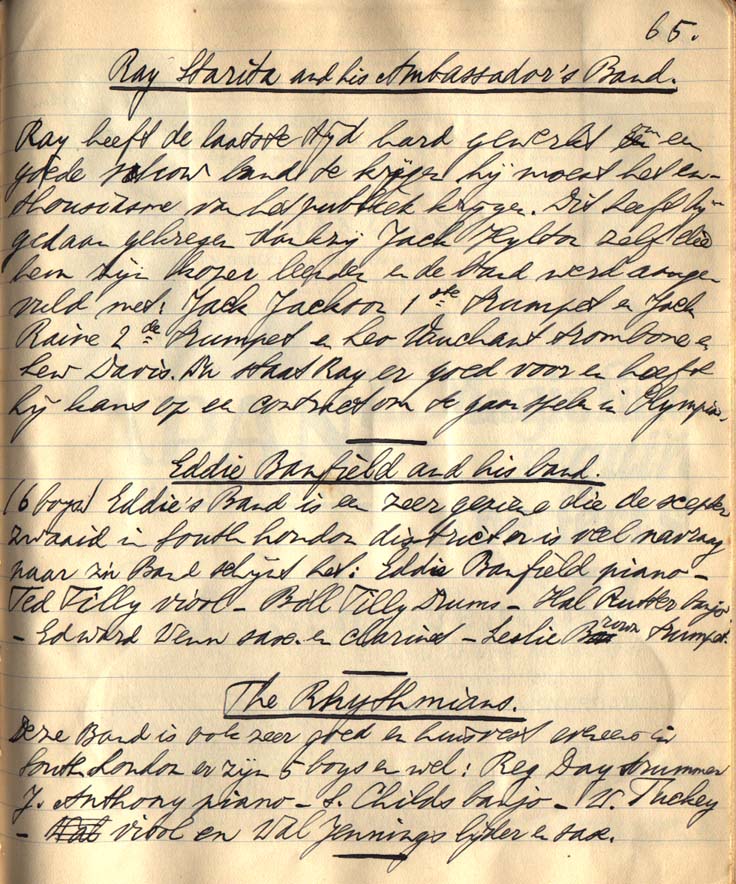 65.
Ray Starita and his Ambassador's Band.
Ray heeft de laatste tijd hard gewerkt om een
goede show band te krijgen hij moest het en-
thousiasme van het publiek krijgen. Dit heeft hij
gedaan gekregen dankzij Jack Hylton zelf die
hem zijn leenden en de band werd aange-
vuld met: Jack Jackson 1ste trumpet en Jack
Raine 2de trumpet en Leo Vauchant trombone en
Lew Davis. Nu staat Ray er goed voor en heeft
hij kans op een contract om te gaan spelen in Olympia.
Eddie Banfield and his band.
(6 boys) Eddie's Band is een zeer geziene die de scepter
zwaaid in South London district er is veel navraag
naar z'n Band schijnt het: Eddie Banfield piano -
Ted Tilly viool - Bill Tilly Drums - Hal Rutter banjo
- Edward Venn sax. en clarinet - Leslie Brown trumpet.
The Rhythmians.
Deze Band is ook zeer goed en huisvest eveneens in
South London er zijn 5 boys en wel: Reg Day drummer
J. Anthony piano - S. Childs banjo - W. Tuckey
- viool en Wal Jennings lijder en sax.